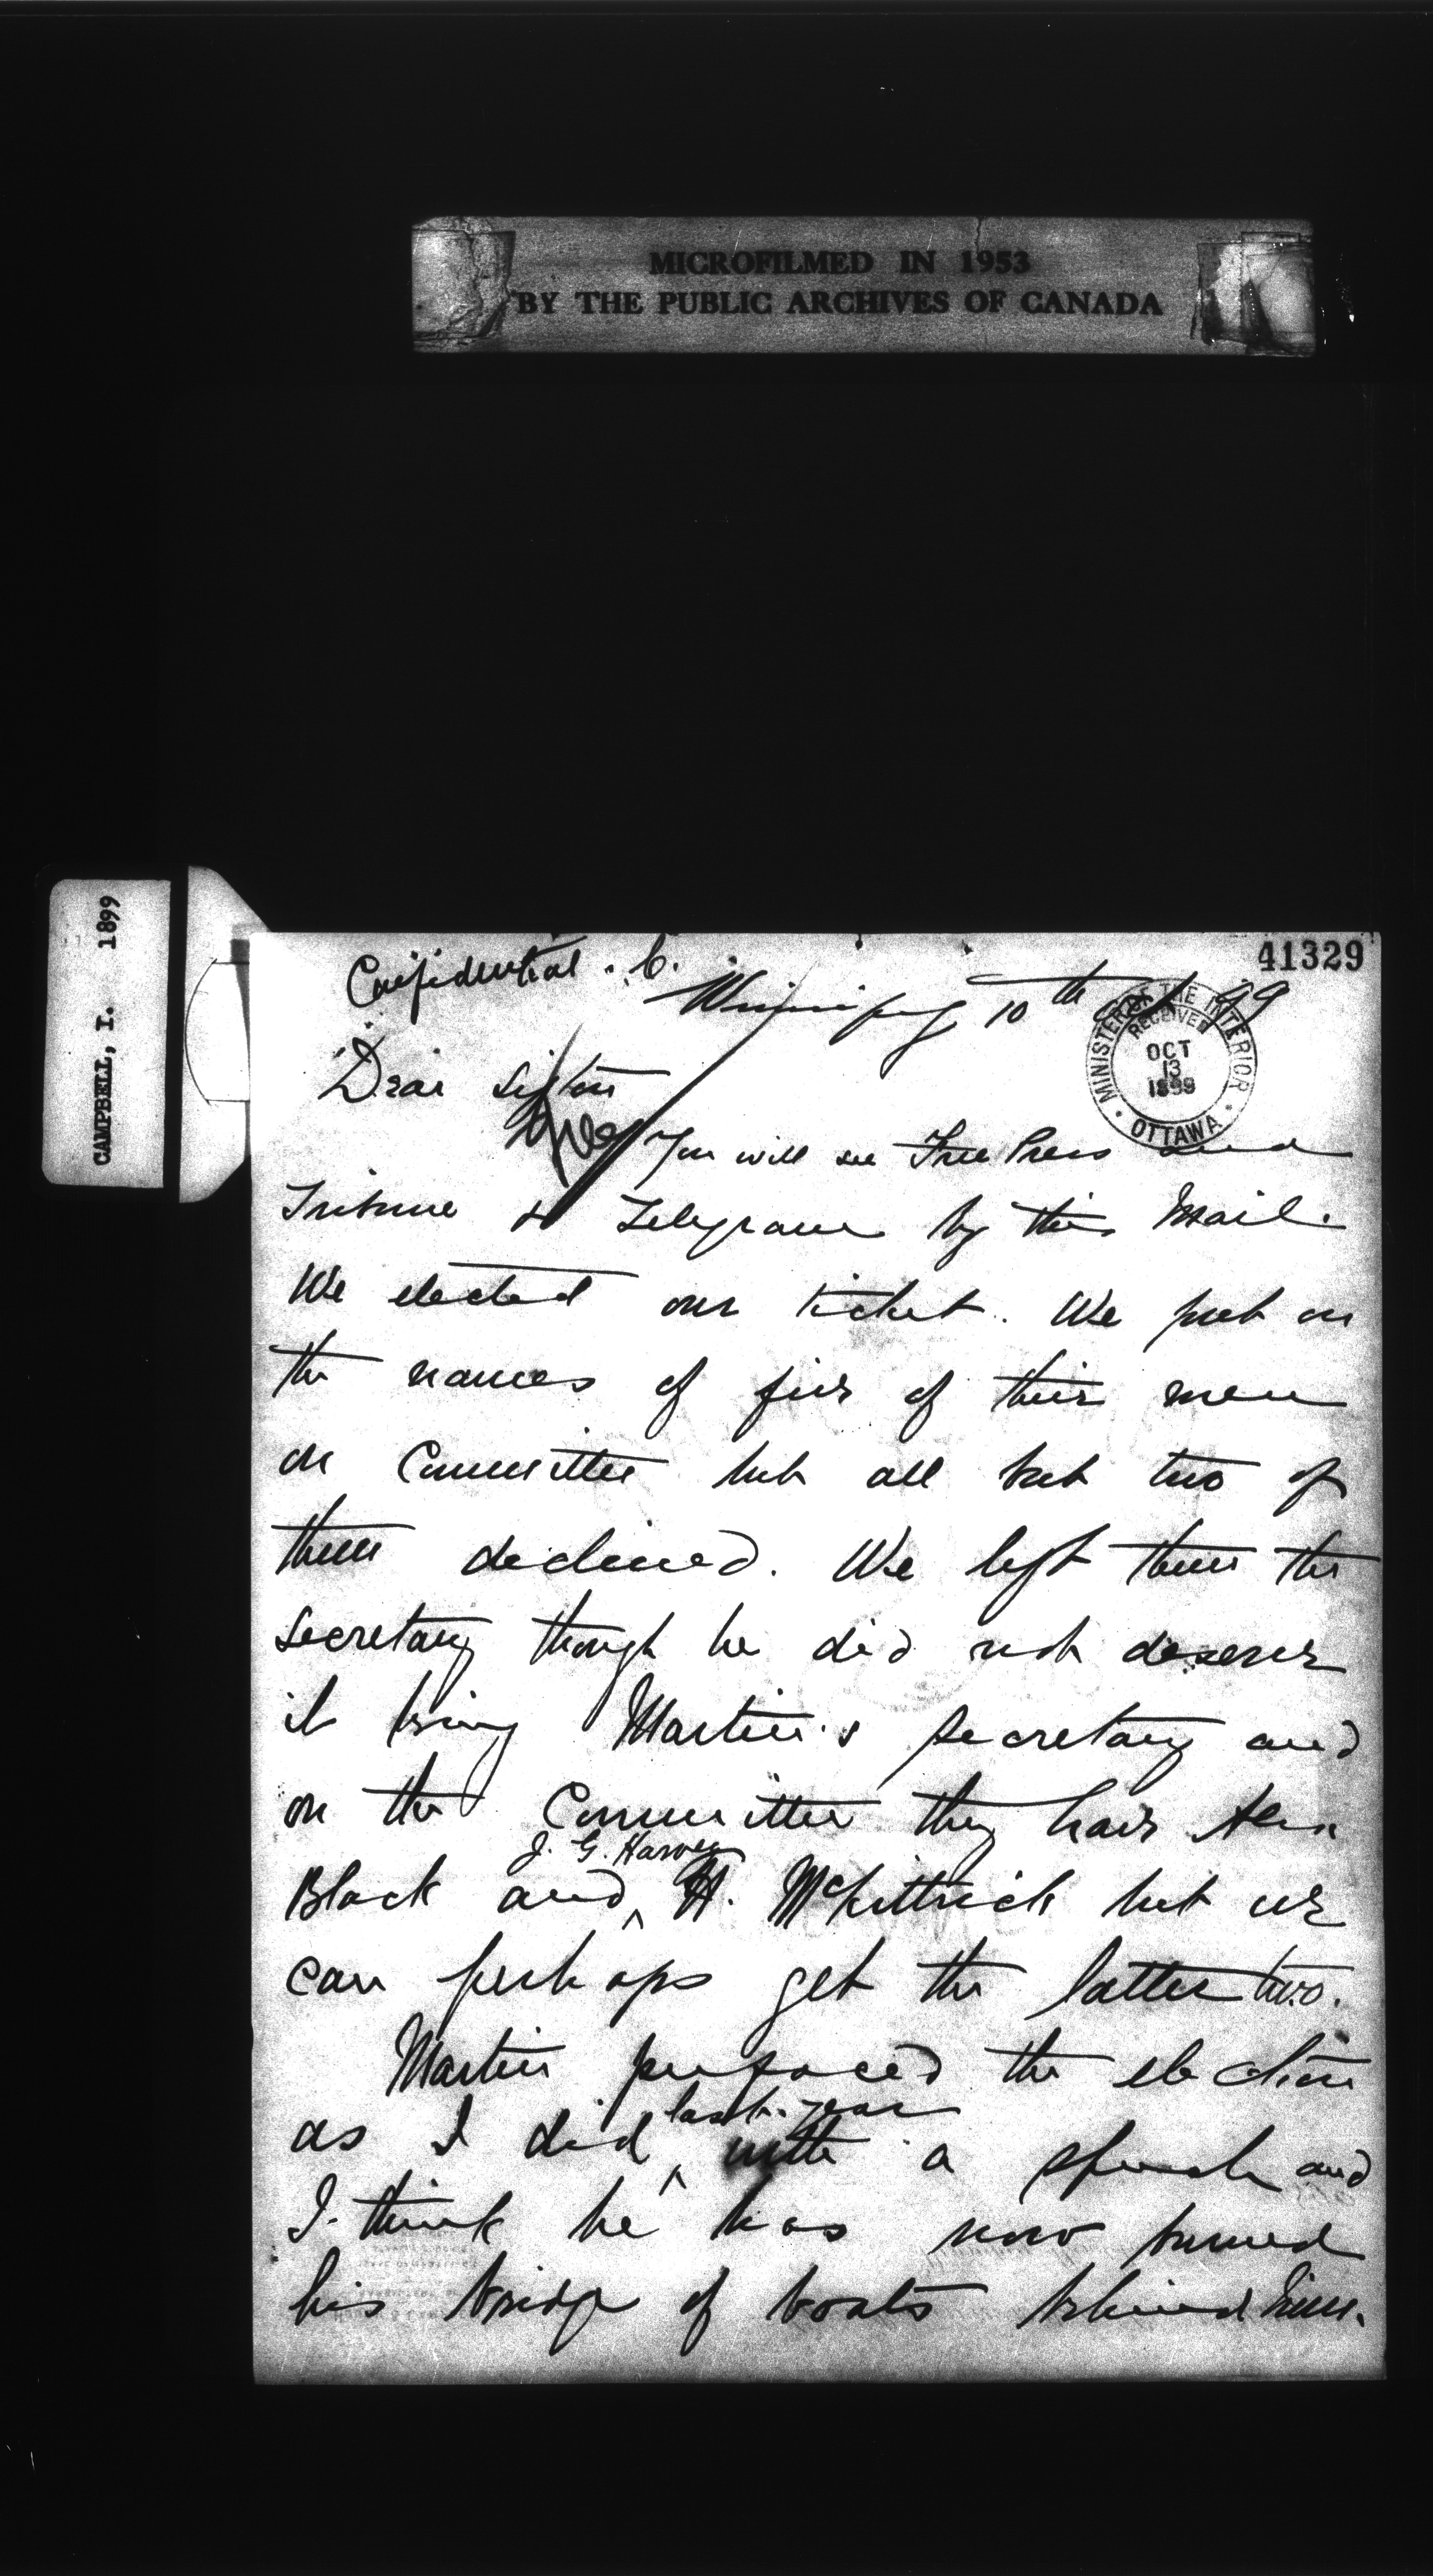 MICROFILMED IN 1953
BY THE PUBLIC ARCHIVES OF CANADA
CAMPBELL, I. 1899
41329
Confidential. C.
Winnipeg 10th Oct 99
MINISTER OF THE INTERIOR
RECEIVED
OCT
13
1899
OTTAWA
Dear Sifton
You will see Free Press and
Tribune & Telegram by this mail.
We elected our ticket. We put on
the names of five of their men
on Committee but all but two of
them declined. We left them the
secretary though he did not deserve
it being Martin's secretary and
on the Committee they have Alex
Black and ^ J. G. Harvey H. McKittrick but we
can perhaps get the latter two.
Martin prefaced the election
as I did ^ last year with a speech and
I think he has now burned
his bridge of boats behind him.